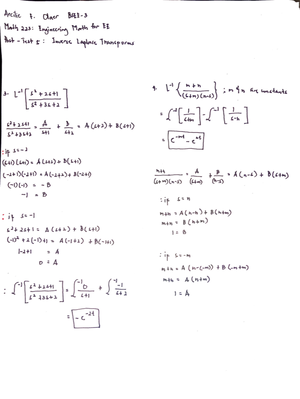 Math 222: Engineering Math for EE
Post-Test 5: Inverse Laplace Transforms
3. L⁻¹ [ s²+2s+1 / s²+3s+2 ]
s²+2s+1 / s²+3s+2 = A / s+1 + B / s+2 = A(s+2) + B(s+1)
: if s = -2
(s+1)(s+1) = A(s+2) + B(s+1)
(-2+1)(-2+1) = A(-2+2) + B(-2+1)
(-1)(-1) = -B
-1 = B
: if s = -1
s²+2s+1 = A(s+2) + B(s+1)
(-1)²+2(-1)+1 = A(-1+2) + B(-1+1)
1-2+1 = A
0 = A
: L⁻¹ [ s²+2s+1 / s²+3s+2 ] = L⁻¹ 0 / s+1 + L⁻¹ -1 / s+2
= -e⁻²ᵗ
4. L⁻¹ { m+n / (s+m)(n-s) } ; m & n are constants
= L⁻¹ [ 1 / s+m ] - L⁻¹ [ 1 / s-n ]
m+n / (s+m)(n-s) = A / (s+m) + B / (n-s) = A(n-s) + B(s+m)
: if s = n
m+n = A(n-n) + B(n+m)
m+n = B(n+m)
1 = B
: if s = -m
m+n = A(n-(-m)) + B(-m+m)
m+n = A(n+m)
1 = A